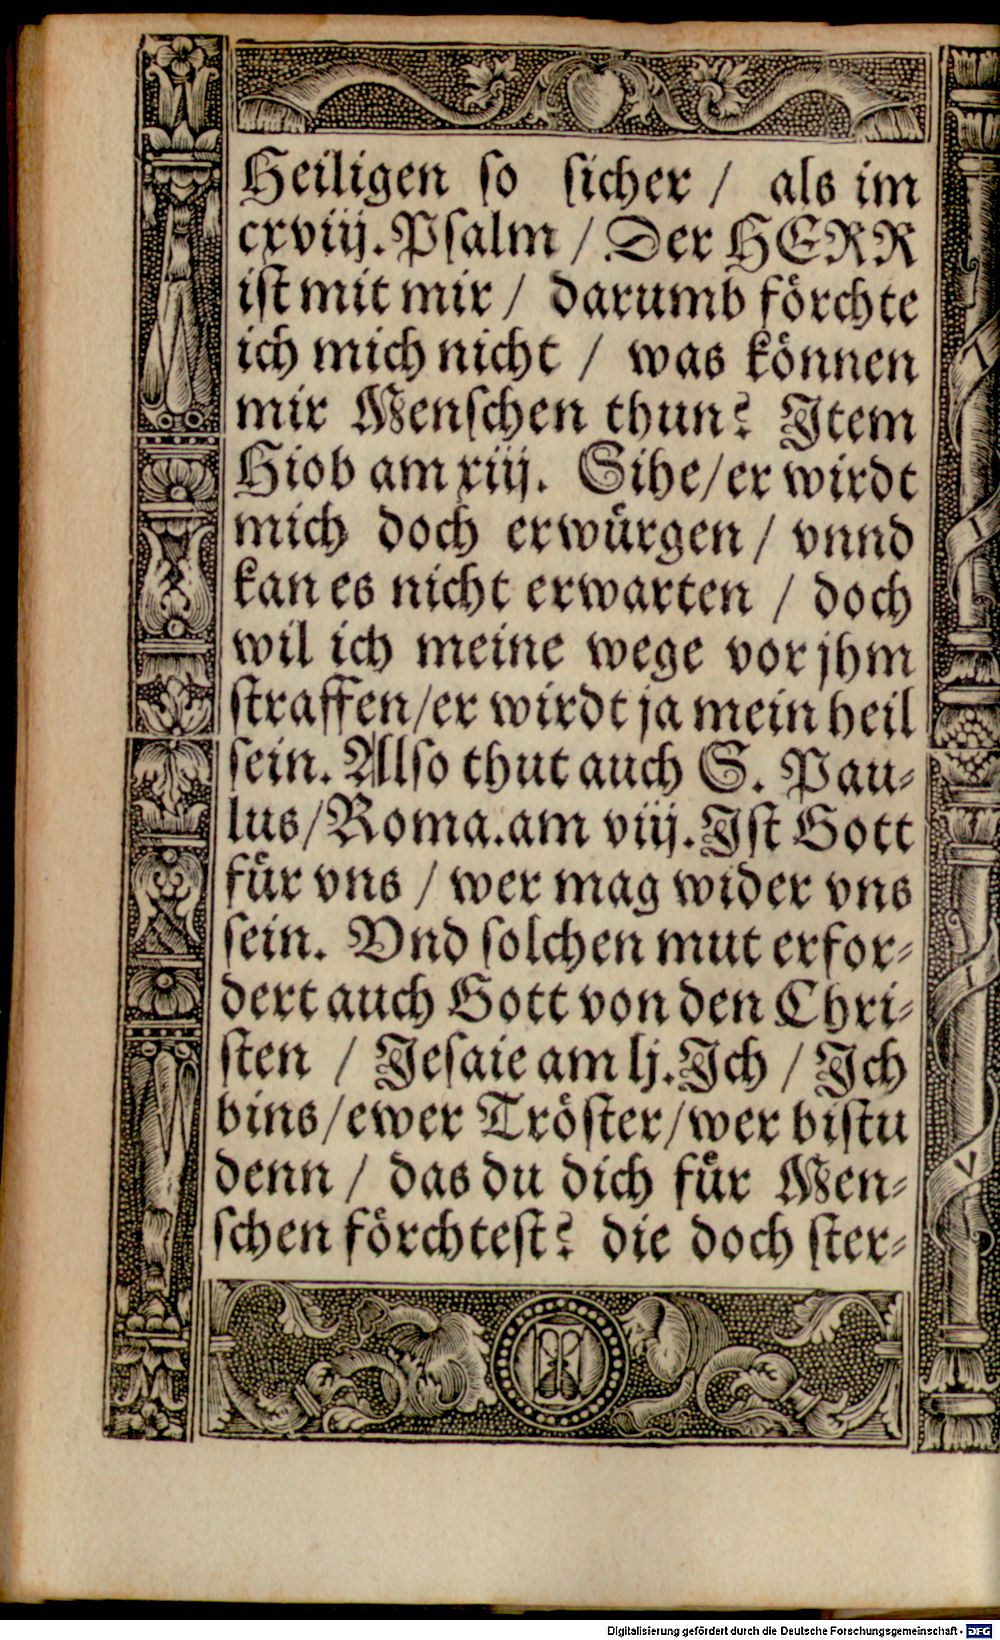 Heiligen so sicher / als im
cxviij. Psalm / Der HERR
ist mit mir / darumb förchte
ich mich nicht / was können
mir Menschen thun? Item
Hiob am xiij. Sihe/er wirdt
mich doch erwürgen / vnnd
kan es nicht erwarten / doch
wil ich meine wege vor jhm
straffen/er wirdt ja mein heil
sein. Also thut auch S. Pau-
lus/Roma.am viij.Ist Gott
für vns / wer mag wider vns
sein. Vnd solchen mut erfor-
dert auch Gott von den Chri-
sten / Jesaie am lj.Ich / Ich
bins/ewer Tröster/wer bistu
denn / das du dich für Men-
schen förchtest? die doch ster-
Digitalisierung gefördert durch die Deutsche Forschungsgemeinschaft - DFG